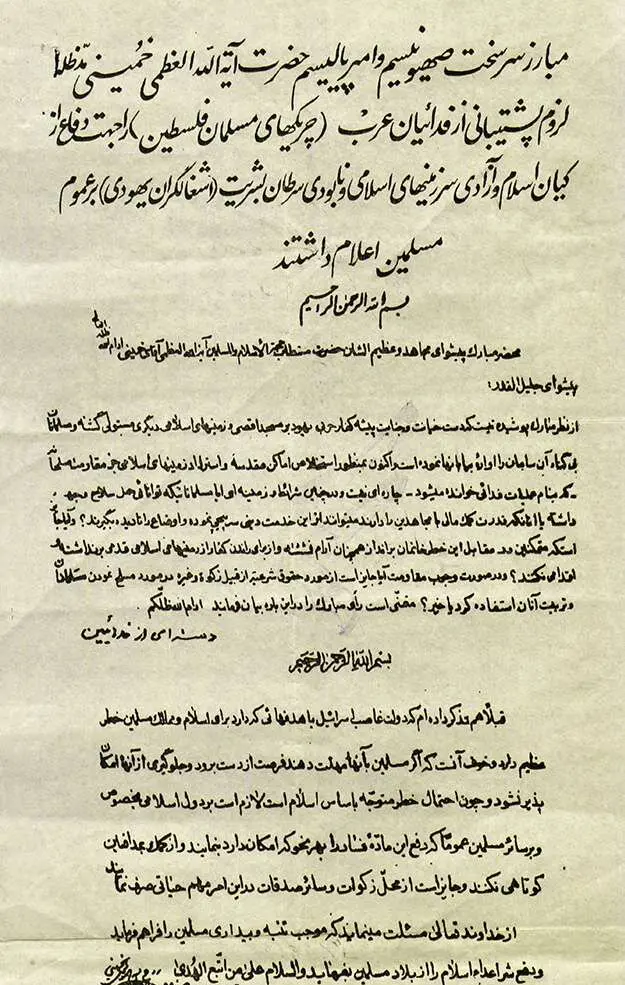 مبارز سرسخت صهیونیسم و امپریالیسم حضرت آیة الله العظمی خمینی مدظله
لزوم پشتیبانی از فدائیان عرب (چریکهای مسلمان فلسطین) را جهت دفاع از
کیان اسلام و آزادی سرزمینهای اسلامی و نابودی سرطان بشریت (اشغالگران یهودی) بر عموم
مسلمین اعلام داشتند
بسم الله الرحمن الرحیم
محضر مبارک پیشوای مجاهد و عظیم الشان حضرت مستطاب حجة الاسلام والمسلمین آیة الله العظمی آقای خمینی ادام الله ظله
پیشوای جلیل القدر:
از نظر مبارک پوشیده نیست که دست خیانت و جنایت پیشه کفار حربی یهود بر مسجد اقصی و زمینهای اسلامی دیگری مستولی گشته و مسلمانان
بی گناه آن سامان را آواره بیابانها نموده است و اکنون بمنظور استخلاص اماکن مقدسه و استرداد زمینهای اسلامی جز مقاومت مسلحانه
که بنام عملیات فدائی خوانده میشود - چاره ای نیست و در چنین شرائط و زمینه ای آیا مسلمانانیکه توانائی حمل سلاح و جبهه
داشته یا آنانکه قدرت کمک مالی با مجاهدین را دارند میتوانند از این خدمت دینی سرپیچی نموده و اوضاع را نادیده بگیرند؟ و آیا جائز
است که متمکنین در مقابل این خطر خانمان برانداز همچنان آرام نشسته و از برای راندن کفار از زمینهای اسلامی قدمی برنداشته
اقدامی نکنند؟ و در صورت وجوب مقاومت آیا جایز است از مورد حقوق شرعیه از قبیل زکوة و غیره در مورد مسلح نمودن مسلمانان
و تربیت آنان استفاده کرد یا خیر؟ مقتضی است رأی مبارک را در این باره بیان فرمائید ادام الله ظلکم
دسته ای از فدائیین
بسم الله الرحمن الرحیم
قبلاً هم تذکر داده ام که دولت غاصب اسرائیل با هدفهائی که دارد برای اسلام و ممالک مسلمین خطر
عظیم دارد و خوف آنست که اگر مسلمین بآنها مهلت دهند فرصت از دست برود و جلوگیری از آنها امکان
پذیر نشود و چون احتمال خطر متوجه باساس اسلام است لازم است بر دول اسلامی بخصوص
و بر سائر مسلمین عموماً که دفع این ماده فساد را بهر نحو که امکان دارد بنمایند و از کمک بمدافعین
کوتاهی نکنند و جایز است از محل زکوات و سائر صدقات در این امر مهم حیاتی صرف نمایند
از خداوند تعالی مسئلت مینمایند که موجب تنبه و بیداری مسلمین را فراهم فرماید
و دفع شر اعداء اسلام را از بلاد مسلمین بفرماید والسلام علی من اتبع الهدی